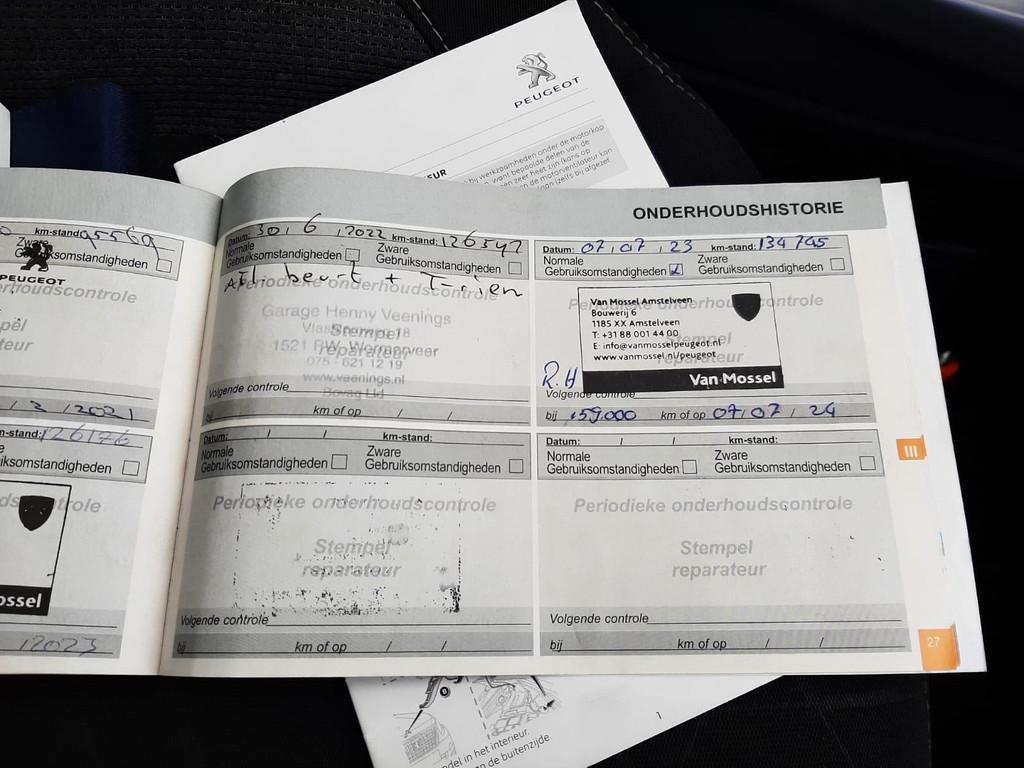 PEUGEOT
EUR
bij werkzaamheden onder de motorkap
want bepaalde delen van de
zeer heet zijn (kans op
en de motorventilateur kan
(zelfs bij afgezet
km-stand: 95569
Zware
Gebruiksomstandigheden
PEUGEOT
rhoudscontrole
pel
teur
/ 3 / 2021
n-stand: 126176
Zware
ksomstandigheden
trole
ossel
/2023
ONDERHOUDSHISTORIE
Datum: 30 , 6 , 2022 km-stand: 126347
Normale Zware
Gebruiksomstandigheden Gebruiksomstandigheden
beurt +
Periodieke onderhoudscontrole
Garage Henny Veenings
Stempel
1521 Wormerveer
reparateur
075 - 621 12 19
www.veenings.nl
Volgende controle
Bovag Lid
bij km of op / /
Datum: 07 , 07 , 23 km-stand: 134 745
Normale Zware
Gebruiksomstandigheden Gebruiksomstandigheden
Van Mossel Amstelveen
Bouwerij 6
1185 XX Amstelveen
T: +31 88 001 44 00
E: info@vanmosselpeugeot.nl
www.vanmossel.nl/peugeot
Van Mossel
R.H
Volgende controle
bij 159.000 km of op 07/07 / 24
Datum: / / km-stand:
Normale Zware
Gebruiksomstandigheden Gebruiksomstandigheden
Periodieke onderhoudscontrole
Stempel
reparateur
Volgende controle
bij km of op / /
Datum: / / km-stand:
Normale Zware
Gebruiksomstandigheden Gebruiksomstandigheden
Periodieke onderhoudscontrole
Stempel
reparateur
Volgende controle
bij km of op / /
III
27
del in het interieur.
n de buitenzijde.
1